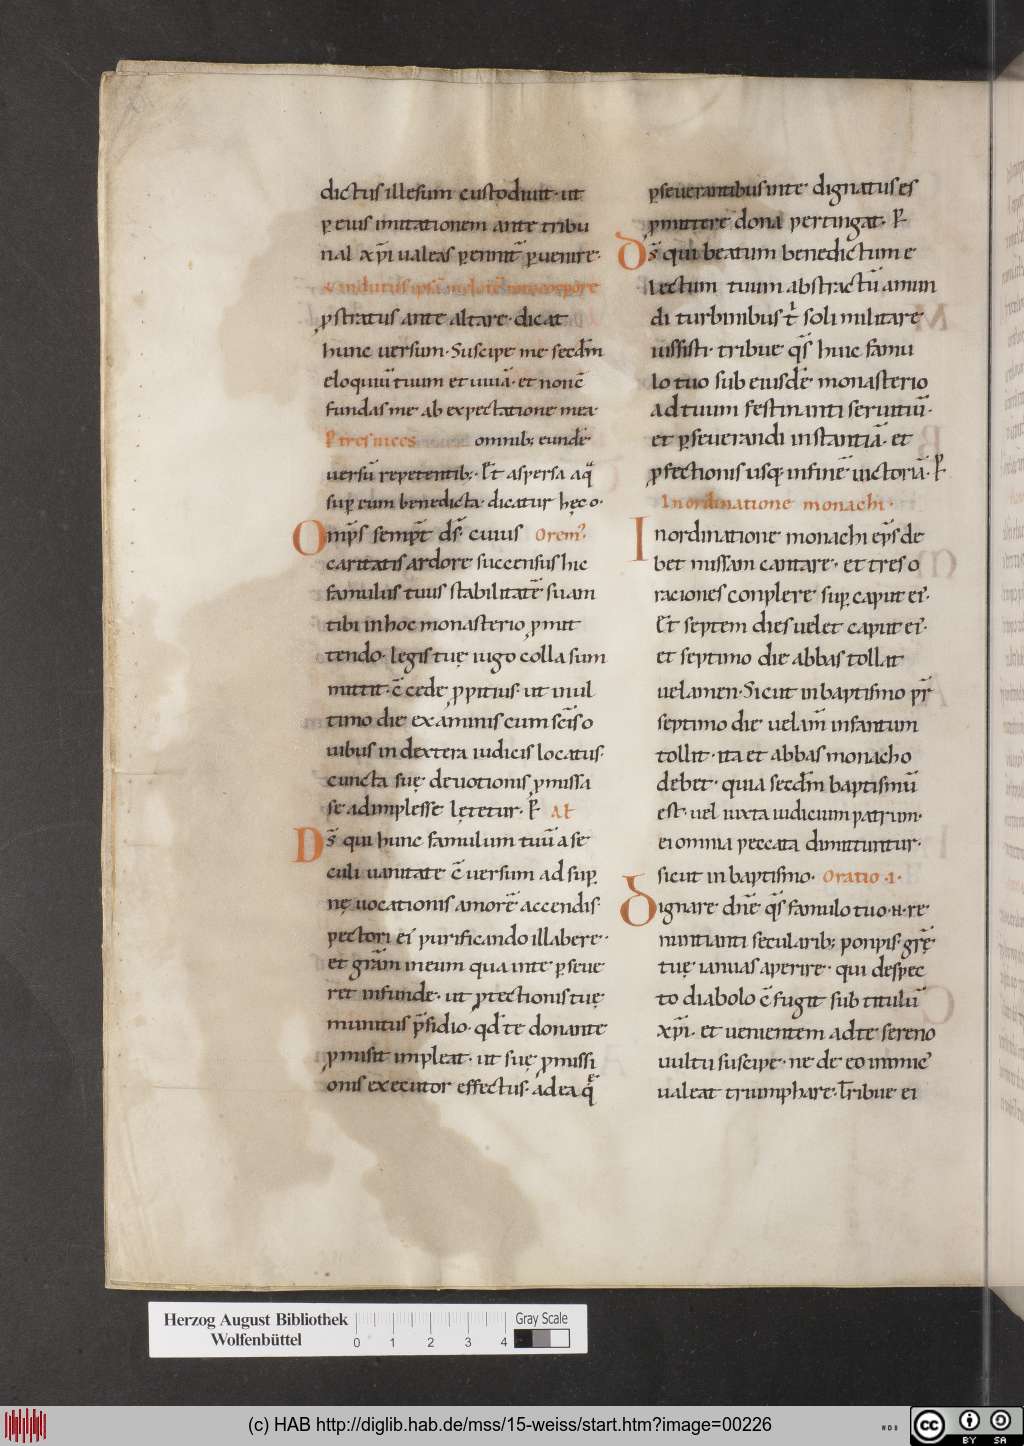 dictus ille sum custodiuit· ut
p̱ eius imitationem ante tribu
nal xp̄i ualeas p̱ennit̄ p̱uenire·
p̱stratus ante altare· dicat
hunc uersum· Suscipe me secdm̄
eloquiū tuum et uiuā· et non c̄
fundas me ab expectatione mea·
P̱ tres uices omnib; eundē
uersū repetentib;· P̄t aspersa aq̄
sup̱ eum benedicta· dicatur hęc o·
Omp̄s semp̄t ds̄· cuius Orem̄·
caritatis ardore succensus hic
famulus tuus stabilitatē suam
tibi in hoc monasterio p̱mit
tendo· legis tuę iugo colla sum
mittit· c̄cede p̱pitius· ut in ul
timo die examinis cum sc̄is o
uibus in dextera iudicis locatus·
cuncta suę deuotionis p̱missa
se adimplesse lętetur· P̱ Aƚ
Ds̄ qui hunc famulum tuū a se
culi uanitate c̄uersum ad sup̱
nę uocationis amorē accendis·
pectori ei purificando illabere·
et grām in eum qua in te p̱seue
ret infunde· ut p̱tectionis tuę
munitus p̄sidio· qd̄ te donante
p̱misit impleat· ut suę p̱missi
onis executor effectus· ad ea q̄
p̱seuerantibus in te dignatus es
p̱mittere dona pertingat· P̱
Ds̄ qui beatum benedictum e
lectum tuum abstractū a mun
di turbinibus t̄ soli militare
iussisti· tribue q̄s huic famu
lo tuo sub eiusdē monasterio
ad tuum festinanti seruitiū·
et p̱seuerandi instantiā· et
p̱fectionis usq; in finē uictoriā· P̱
In ordinatione monachi·
In ordinatione monachi ep̄s de
bet missam cantare· et tres o
raciones conplere sup̱ caput ei·
Et septem dies uelet caput ei·
et septimo die abbas tollat
uelamen· Sicut in baptismo pr̄
septimo die uelam̄ infantum
tollit· ita et abbas monacho
debet· quia secdm̄ baptismū
est· uel iuxta iudicium patrum·
ei omnia peccata dimittuntur·
sicut in baptismo· Oratio ·1·
Dignare dnē q̄s famulo tuo ·N· re
nuntianti secularib; ponpis· grę̄
tuę ianuas aperire· qui despec
to diabolo c̄fugit sub titulū
xp̄i· et uenientem ad te sereno
uultu suscipe· ne de eo inimic'
ualeat triumphare· Tribue ei
Herzog August Bibliothek
Wolfenbüttel
0 1 2 3 4
Gray Scale
(c) HAB http://diglib.hab.de/mss/15-weiss/start.htm?image=00226
cc BY SA